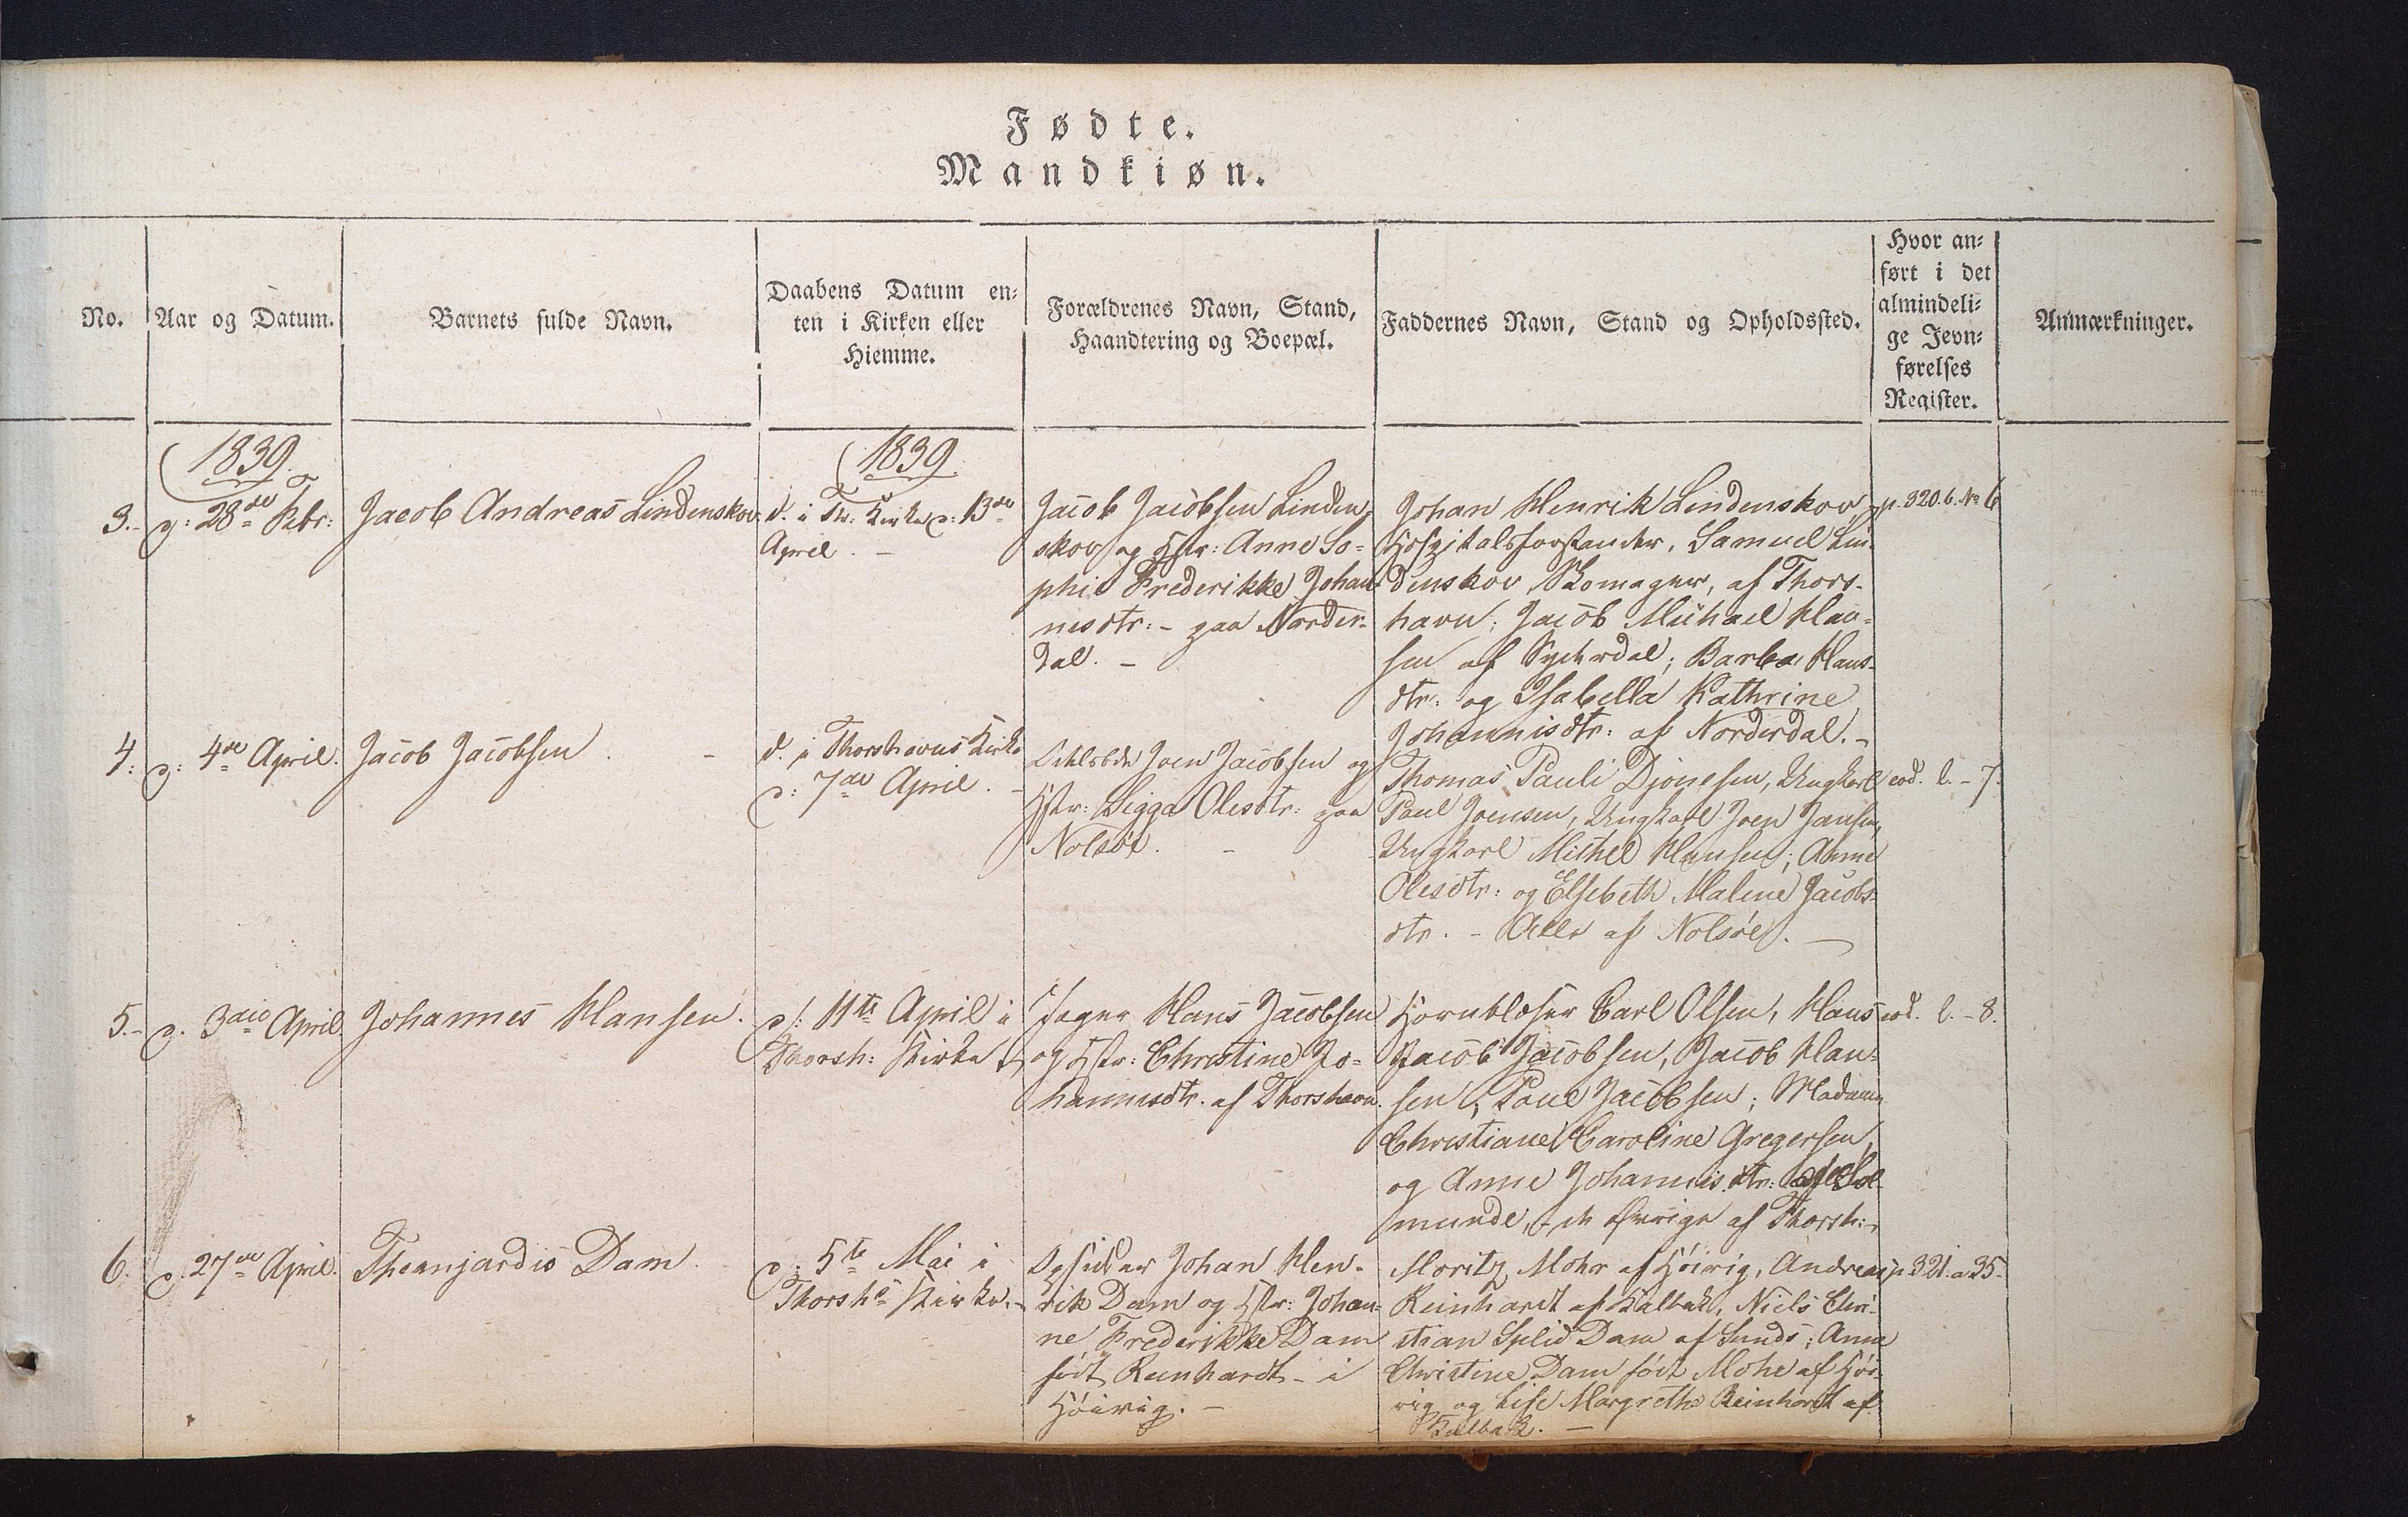 Fødte.
Mandkiøn.
No.
Aar og Datum.
Barnets fulde Navn.
Daabens Datum en-
ten i Kirken eller
Hiemme.
Forældrenes Navn, Stand,
Haandtering og Boepæl.
Faddernes Navn, Stand og Opholdssted.
Hvor an-
ført i det
almindeli-
ge Jevn-
førelses
Register.
Anmærkninger.
1839.
3.- d: 28de Febr:
Jacob Andreas Lindenskov
1839.
d. i Th: Kirke d: 13de
April. -
Jacob Jacobsen Linden-
skov og Hstr: Anne So-
phie Frederikke Johan-
nesdtr: - paa Norder-
dal. -
Johan Henrik Lindenskov,
Hospitalsforstander, Samuel Lin-
denskov Skomager, af Thors-
havn; Jacob Michael Han-
sen af Syderdal; Barba Hans-
dtr: og Isabella Kathrine
Johannisdtr: af Norderdal. -
p. 320. b. No 6
4: d: 4de April.
Jacob Jacobsen. -
d. i Thorshavns Kirke
d: 7de April. -
Joen Jacobsen og
Hstr: Sigga Olesdtr: paa
Nolsöe. -
Thomas Pauli Djonesen, Ungkarl
Poul Joensen, Ungkarl Joen Jansen,
Ungkarl Michel Hansen; Anne
Olesdtr: og Elsebeth Malene Jacobs-
dtr. - Alle af Nolsöe. -
eod. l. - 7.
5.- d. 3die April.
Johannes Hansen.
d: 11te April i
Thorsh: Kirke
Jæger Hans Jacobsen
og Hstr: Christine Jo-
hannesdtr. af Thorshavn.
Hornblæser Carl Olsen, Hans
Jacob Jacobsen, Jacob Han-
sen, Poul Jacobsen; Madame
Christiane Caroline Gregersen,
og Anne Johannisdtr: af Sol-
munde, - de øvrige af Thorsh: -
eod. l. - 8.
6. d. 27de April.
Dam.
d: 5te Mai i
Thorshs Kirke. -
Johan Hen-
rik Dam og Hstr: Johan-
ne Frederikke Dam
født Reinhardt - i
Höivig. -
Moritz Mohr af Höivig, Andreas
Reinhardt af Kalbak, Niels Chri-
stian Splid Dam af Sunds; Anne
Christine Dam født Mohr af Höi-
vig og Lise Margrethe Reinhardt af
Kalbak. -
p. 321. a 35.